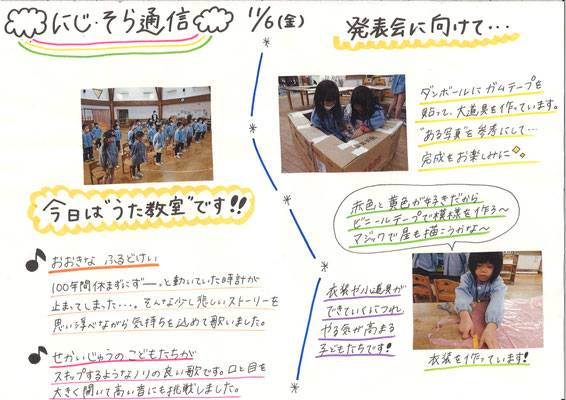 にじ・そら通信
11/6(金)
今日は"うた教室"です!!
おおきな ふるどけい
100年間休まずにずーーっと動いていた時計が
止まってしまった・・・。そんな少し悲しいストーリーを
思い浮べながら気持ちを込めて歌いました。
せかいじゅうの こどもたちが
スキップするようなノリの良い歌です。口と目を
大きく開いて高い音にも挑戦しました。
発表会に向けて・・・
ダンボールにガムテープを
貼って、大道具を作っています。
"ある写真"を参考にして・・・
完成をお楽しみに
赤色と黄色が好きだから
ビニールテープで模様を作ろ〜
マジックで星も描こうかな〜
衣装や小道具が
できていくにつれ、
やる気が高まる
子どもたちです!
衣装を作っています!